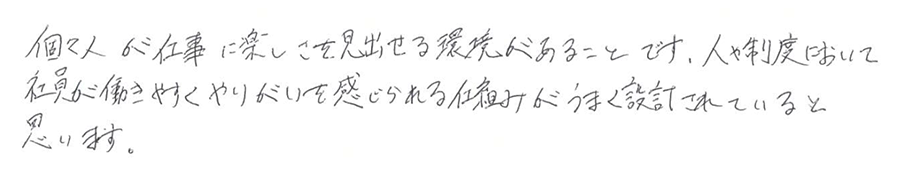 個々人が仕事に楽しさを見出せる環境があることです。人や制度において
社員が働きやすくやりがいを感じられる仕組みがうまく設計されていると
思います。